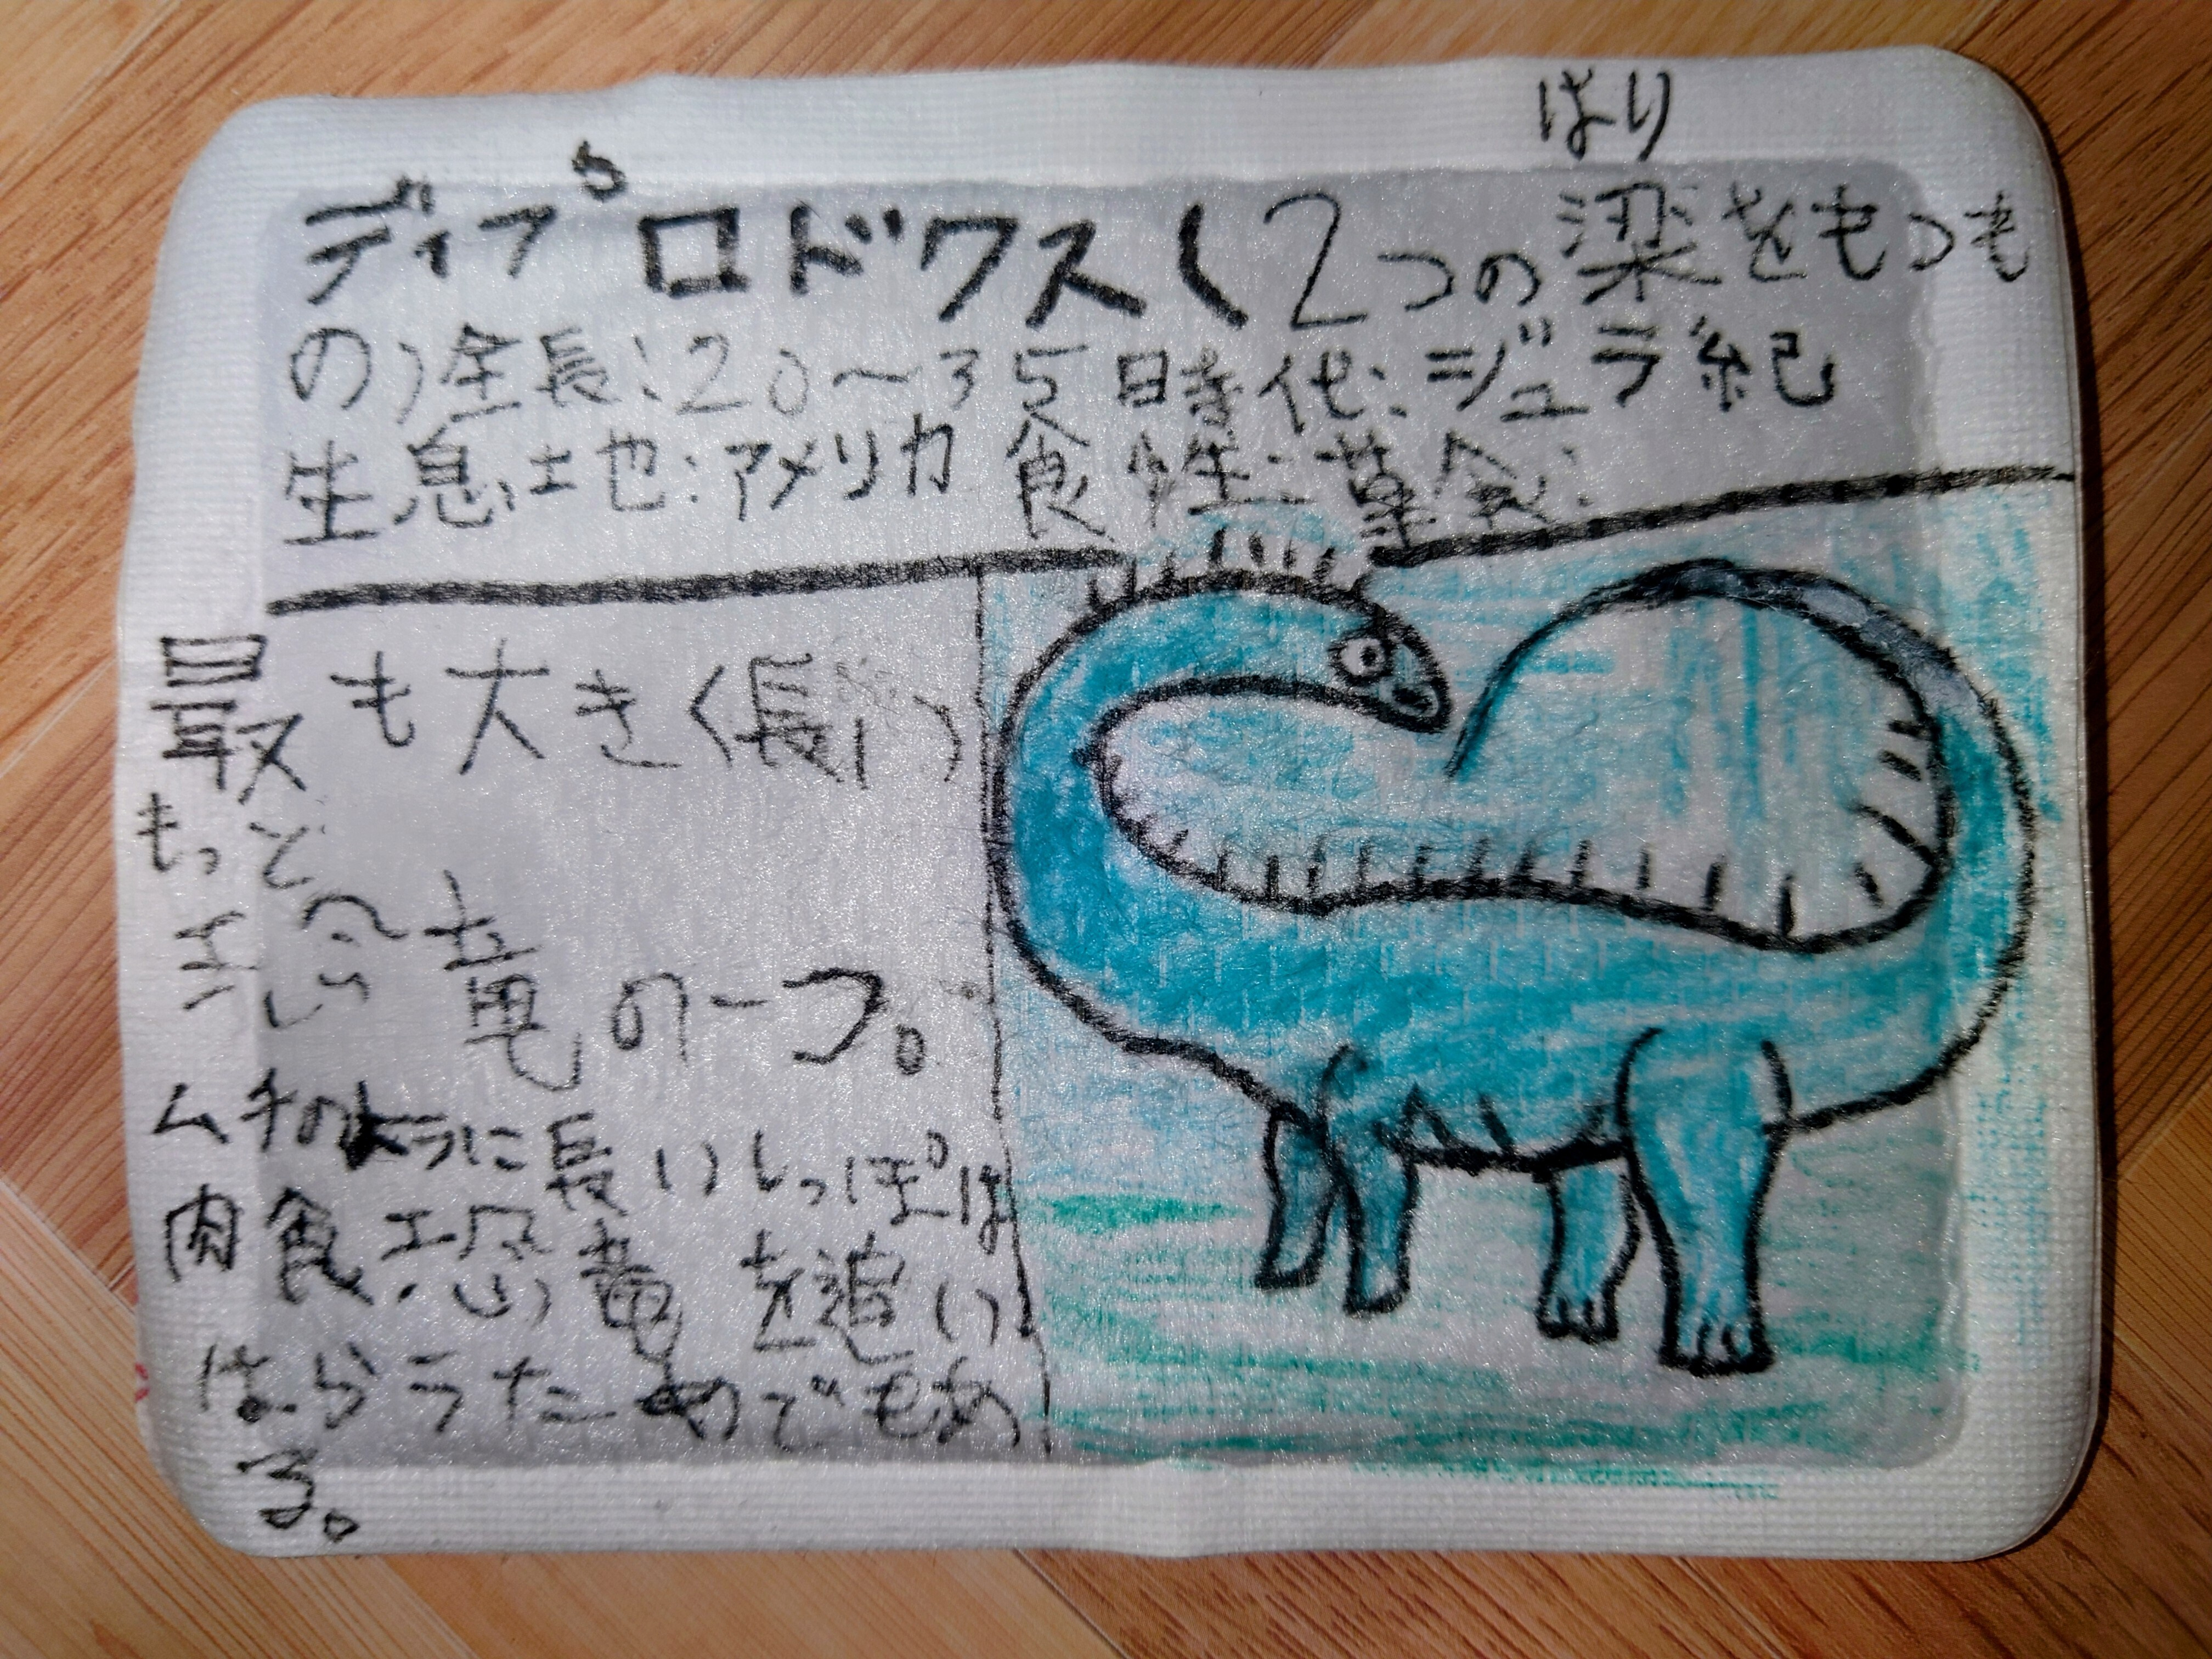 はり
ディプロドクス(2つの梁をもつも
の)全長:20〜35時代:ジュラ紀
生息土也:アメリカ食性:草食:
最も大き(長い)
もっと
恐竜の一つ。
ムチのように長いしっぽは
肉食恐竜を追い
はらうためでもあ
る。